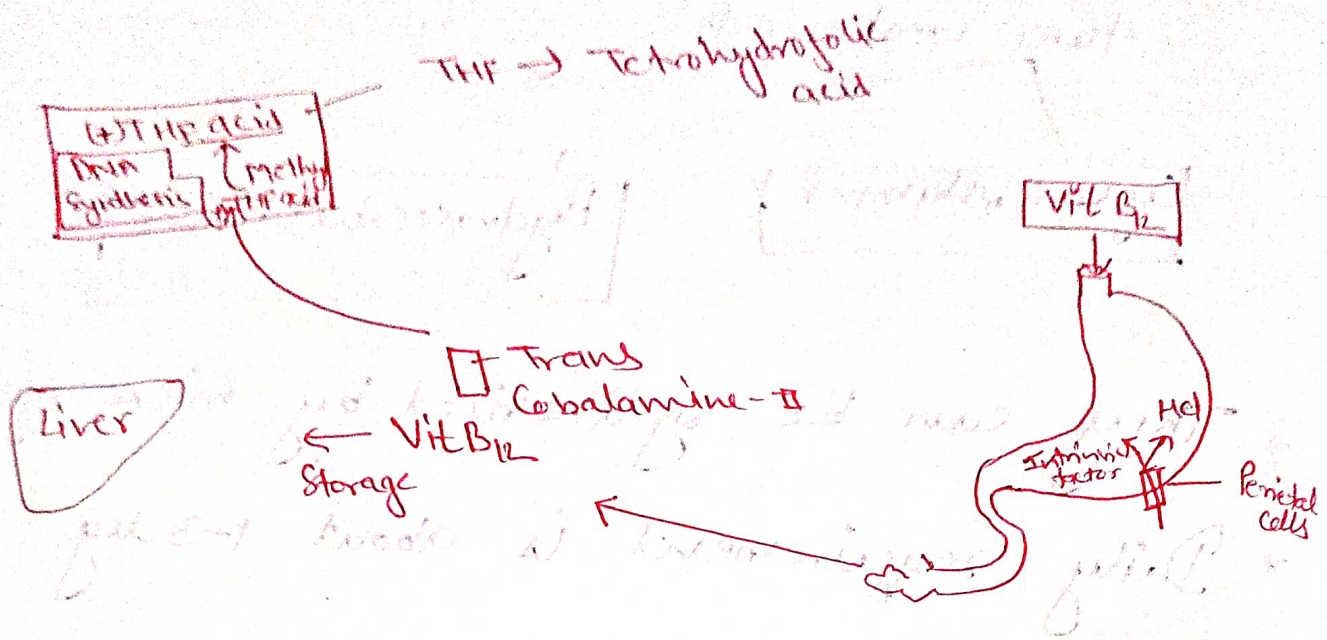 THF → Tetrohydrofolic
acid
(+)THF acid
DNA
Synthesis
Methyl
THF acid
Vit B12
Trans
Cobalamine-II
Liver
← Vit B12
Storage
HCl
Intrinsic
factor
Perietal
Cells